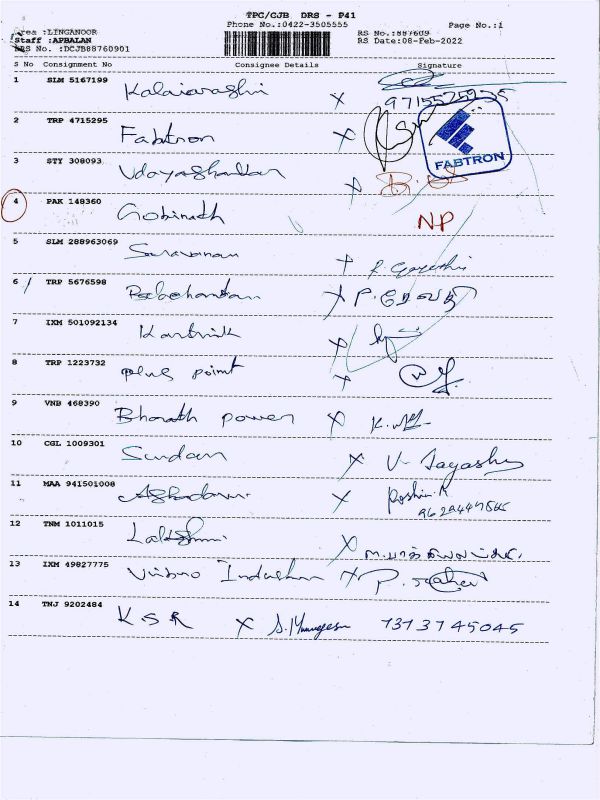 TPC/CJB DRS - P41
Phone No.:0422-3505555
Page No.:1
Area :LINGANOOR
Staff :APBALAN
DRS No. :DCJB88760901
RS No.:887609
RS Date:08-Feb-2022
S No Consignment No Consignee Details Signature
1 SLM 5167199 Kalaiarashi X
2 TRP 4715295 Fabtron X FABTRON
3 STY 308093 Udayashankar X
4 PAK 148360 Gobinath NP
5 SLM 288963069 Saravanan X
6 TRP 5676598 X
7 IXM 501092134 Karthik X
8 TRP 1223732 plus point X
9 VNB 468390 Bharath power X
10 CGL 1009301 Sundar X
11 MAA 941501008 X Roshin.R
12 TNM 1011015 Lakshmi X
13 IXM 49827775 X
14 TNJ 9202484 K.S.R X S.Murugesn 7373745045